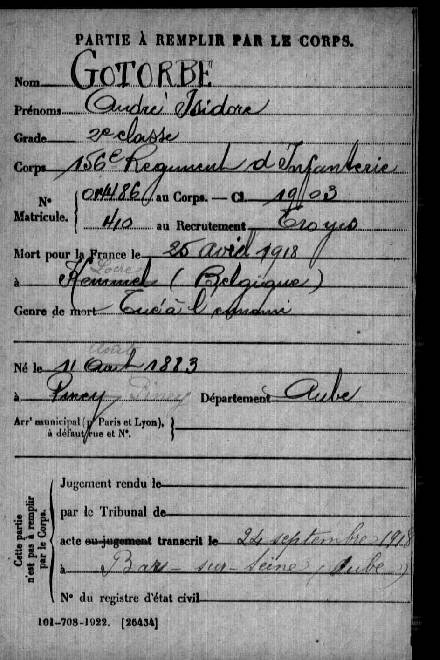 PARTIE À REMPLIR PAR LE CORPS.
Nom GOTORBE
Prénoms André Isidore
Grade 2e classe
Corps 156e Régiment d'Infanterie
Nº Matricule. { 014186 au Corps. — Cl. 1903
410 au Recrutement Troyes
Mort pour la France le 25 avril 1918
Locre
à Kemmel (Belgique)
Genre de mort Tué à l'ennemi
Août
Né le 11 Août 1883
à Piney Piney Département Aube
Arrt municipal (pr Paris et Lyon), à défaut rue et Nº. }
Cette partie n'est pas à remplir par le Corps.
Jugement rendu le
par le Tribunal de
acte ou jugement transcrit le 24 septembre 1918
à Bar-sur-Seine (Aube)
Nº du registre d'état civil
161-708-1922. [26434]